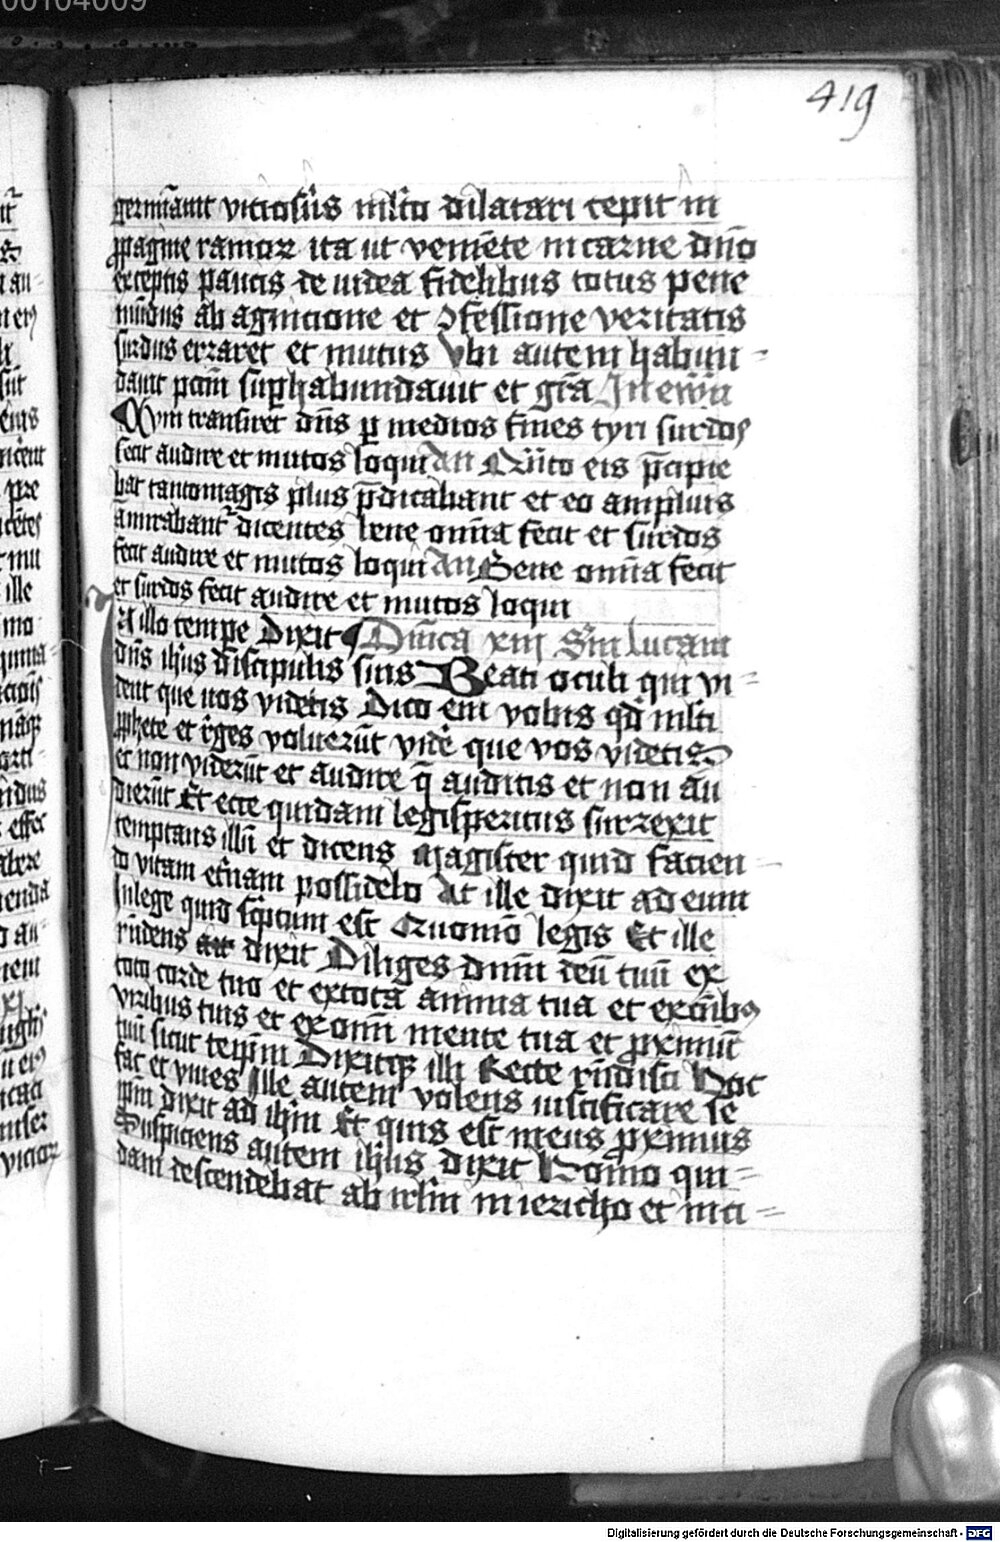 419
germīauit viciosiꝰ mlto dilatari cepit in
ꝓpagine ramoꝝ ita ut veniēte in carne dn̄o
exceptis paucis de iudea fidelibus totus pene
mūdus ab agnicione et ꝯfessione veritatis
surdus erraret et mutus Vbi autem habūn=
dauit pctm̄ suꝑhabundauit et grā In ewā
Cum transiret dn̄s ꝑ medios fines tyri surdos
fecit audire et mutos loqui An Quāto eis p̄cipie
bat tantomagis plus p̄dicabant et eo amplius
āmirabant᷑ dicentes bene omīa fecit et surdos
fecit audire et mutos loqui An Bene omīa fecit
et surdos fecit audire et mutos loqui
In illo tempe Dixit Dūica xiij Sm̄ lucam
dn̄s ihūs discipulis suis Beati oculi qui vi=
dent que uos videtis Dico em̄ vobis qd̄ mlti
ꝓphete et reges voluerūt videre que vos videtis
et non viderūt et audire q̄ auditis et non au
dierūt Et ecce quidam legisperitus surrexit
temptans illū et dicens Magister quid facien=
do vitam et̄nam possidebo At ille dixit ad eum
In lege quid sc̄ptum est Quomō legis Et ille
rn̄dens dixit Diliges dnm̄ deū tuū ex
toto corde tuo et ex tota anima tua et ex oīnibꝰ
viribus tuis et ex omī mente tua et ꝓximūt
tuū sicut teip̄m Dixitqꝫ illi Recte rn̄disti Hoc
fac et viues Ille autem volens iustificare se
ip̄m dixit ad ihm̄ Et quis est meus ꝓximus
Suspiciens autem ihūs dixit Homo qui=
dam descendebat ab irlm̄ in iericho et inci=
Digitalisierung gefördert durch die Deutsche Forschungsgemeinschaft - DFG